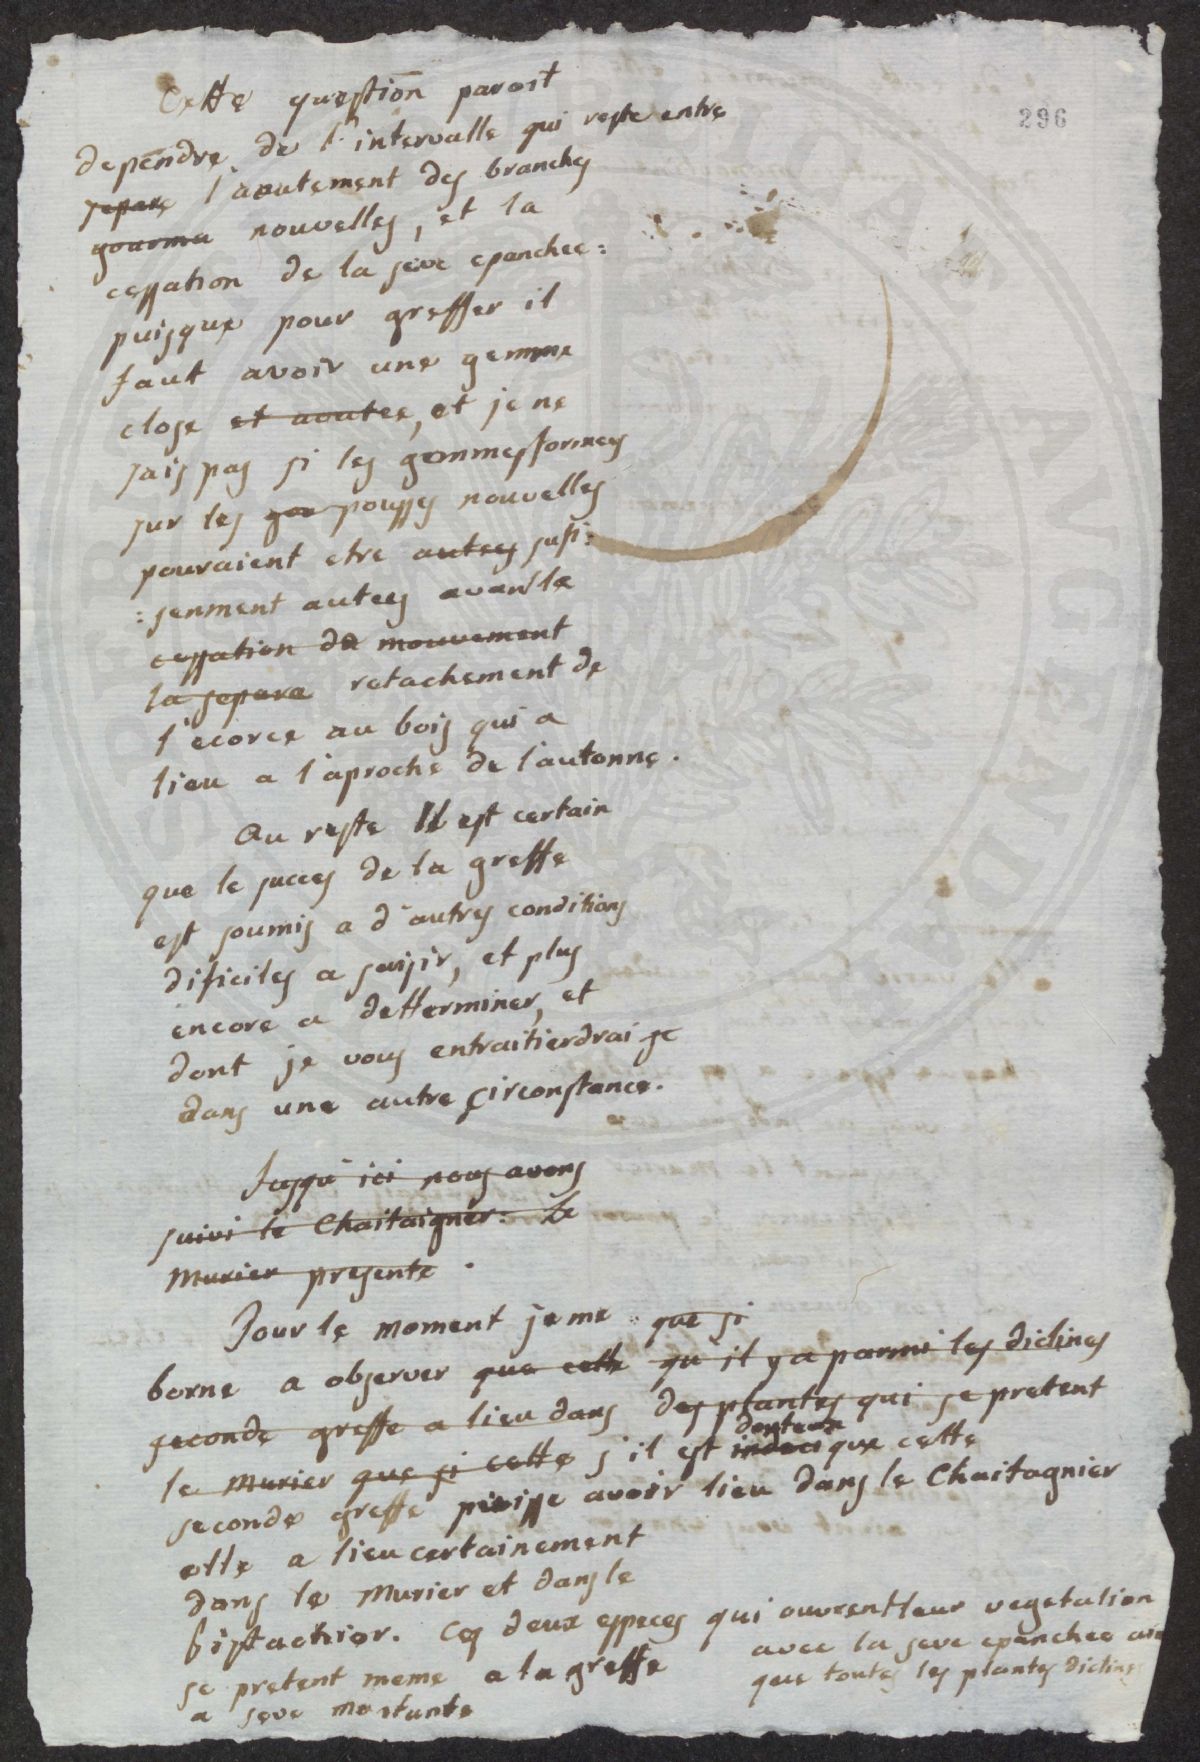 296
Cette question paroit
dependre de l'intervalle qui reste entre
separe l'aoutement des branches
gourma nouvelles, et la
cessation de la seve epanchee:
puisque pour greffer il
faut avoir une gemme
close et aoutee, et je ne
sais pas si les gemmes formees
sur les gou pousses nouvelles
pouraient etre autees sufi:
:senment autees avant le
cessation de mouvement
la separe ratachement de
l'ecorce au bois qui a
lieu a l'aproche de l'autonne.
Au reste Il est certain
que le succes de la greffe
est soumis a d'autres conditions
dificiles a saisir, et plus
encore a detterminer, et
dont je vous entraitierdrai je
dans une autre circonstance.
Jusqu'ici nous avons
suivi le Chaitaigner: Le
Murier presente.
Pour le moment je me que si
borne a observer que cette qu'il y a parmi les diclines
seconde greffe a lieu dans des plantes qui se pretent
douteux
le Murier que si cette s'il est indeci que cette
seconde greffe puisse avoir lieu dans le Chaitagnier
elle a lieu certainement
dans le Murier et dans le
bistachier. Ces deux especes qui ouvrent leur vegetation
avec la seve epanchee
se pretent meme a la greffe
que toutes les plantes diclines
a seve montante